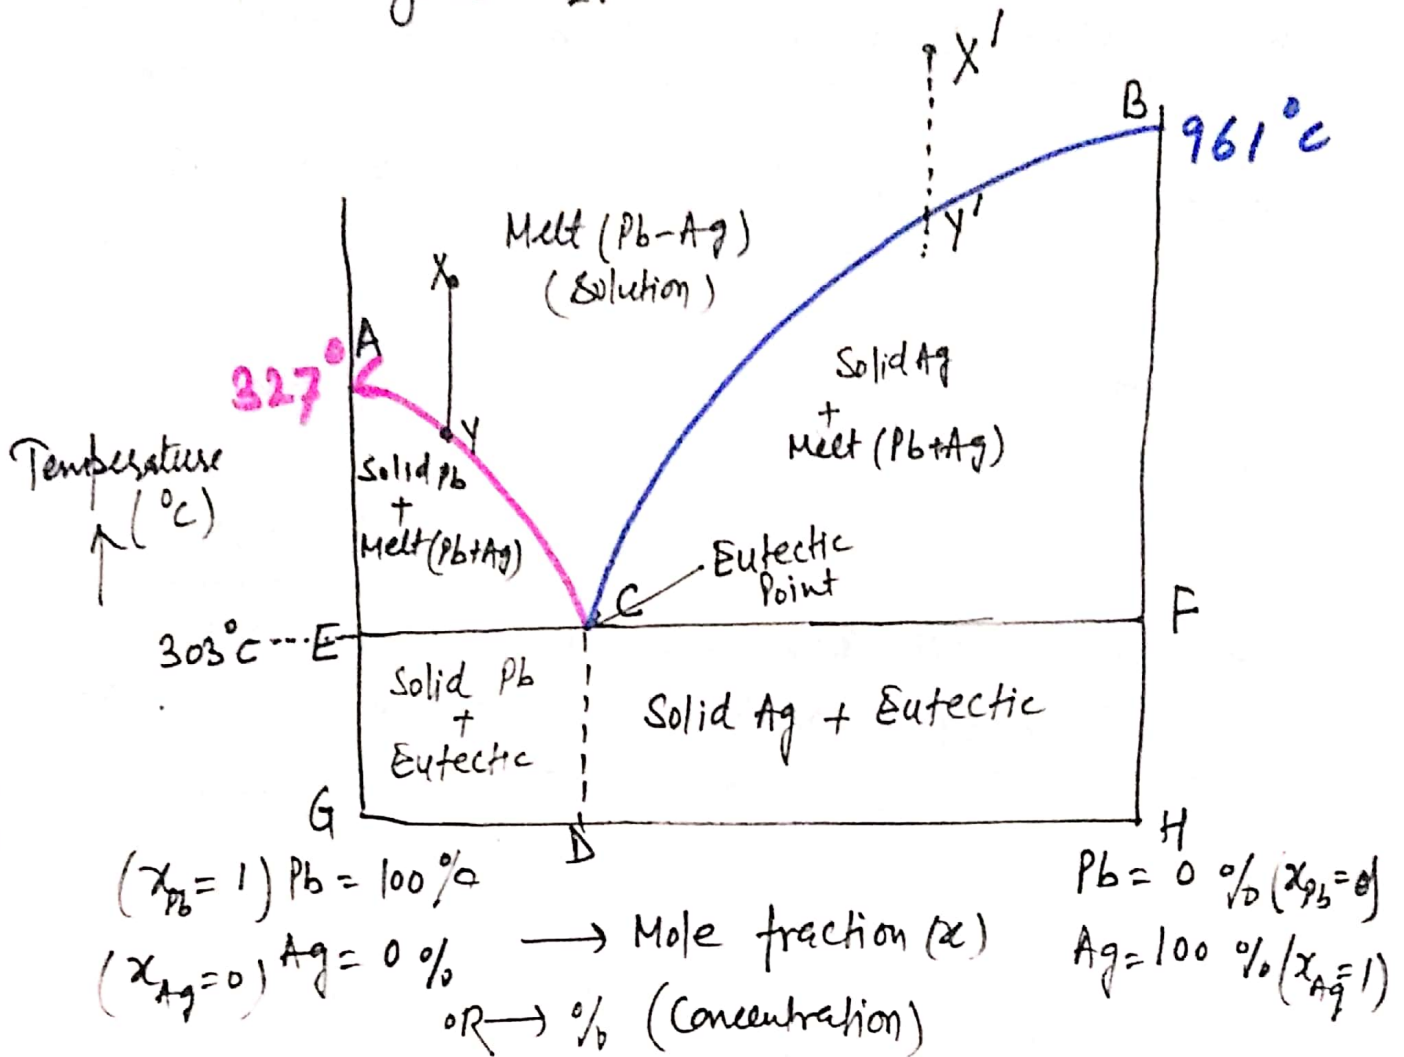 X'
B
961°C
Melt (Pb-Ag)
(Solution)
Y'
X
A
327°
Solid Ag
+
Melt (Pb+Ag)
Y
Temperature
(°C)
Solid Pb
+
Melt (Pb+Ag)
Eutectic
Point
C
F
303°C ---- E
Solid Pb
+
Eutectic
Solid Ag + Eutectic
G
D
H
(x_Pb = 1) Pb = 100%
Pb = 0 % (x_Pb = 0)
(x_Ag = 0) Ag = 0 %
→ Mole fraction (x)
Ag = 100 % (x_Ag = 1)
OR → % (Concentration)